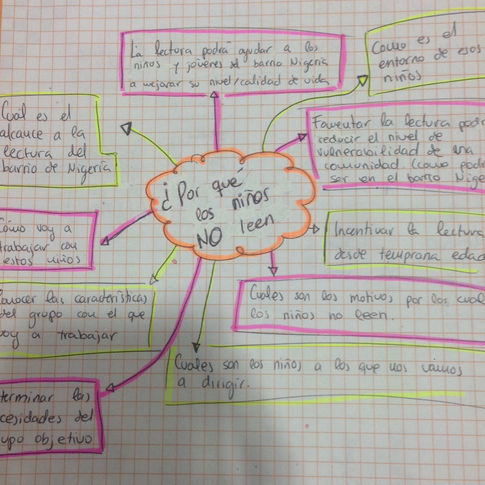 La lectura podrá ayudar a los
niños y jóvenes del barrio Nigeria
a mejorar su nivel/calidad de vida
Como es el
entorno de esos
niños
Cual es el
alcance a la
lectura del
barrio de Nigeria
Fomentar la lectura podr
reducir el nivel de
vulnerabilidad de una
comunidad. (como podr
ser en el barrio Nige
¿Por qué
los niños
NO leen
Cómo voy a
trabajar con
estos niños
Incentivar la lectura
desde temprana edad
Conocer las características
del grupo con el que
voy a trabajar
Cuales son los motivos por los cual
los niños no leen.
Cuales son los niños a los que nos vamos
a dirigir.
terminar las
cesidades del
upo objetivo